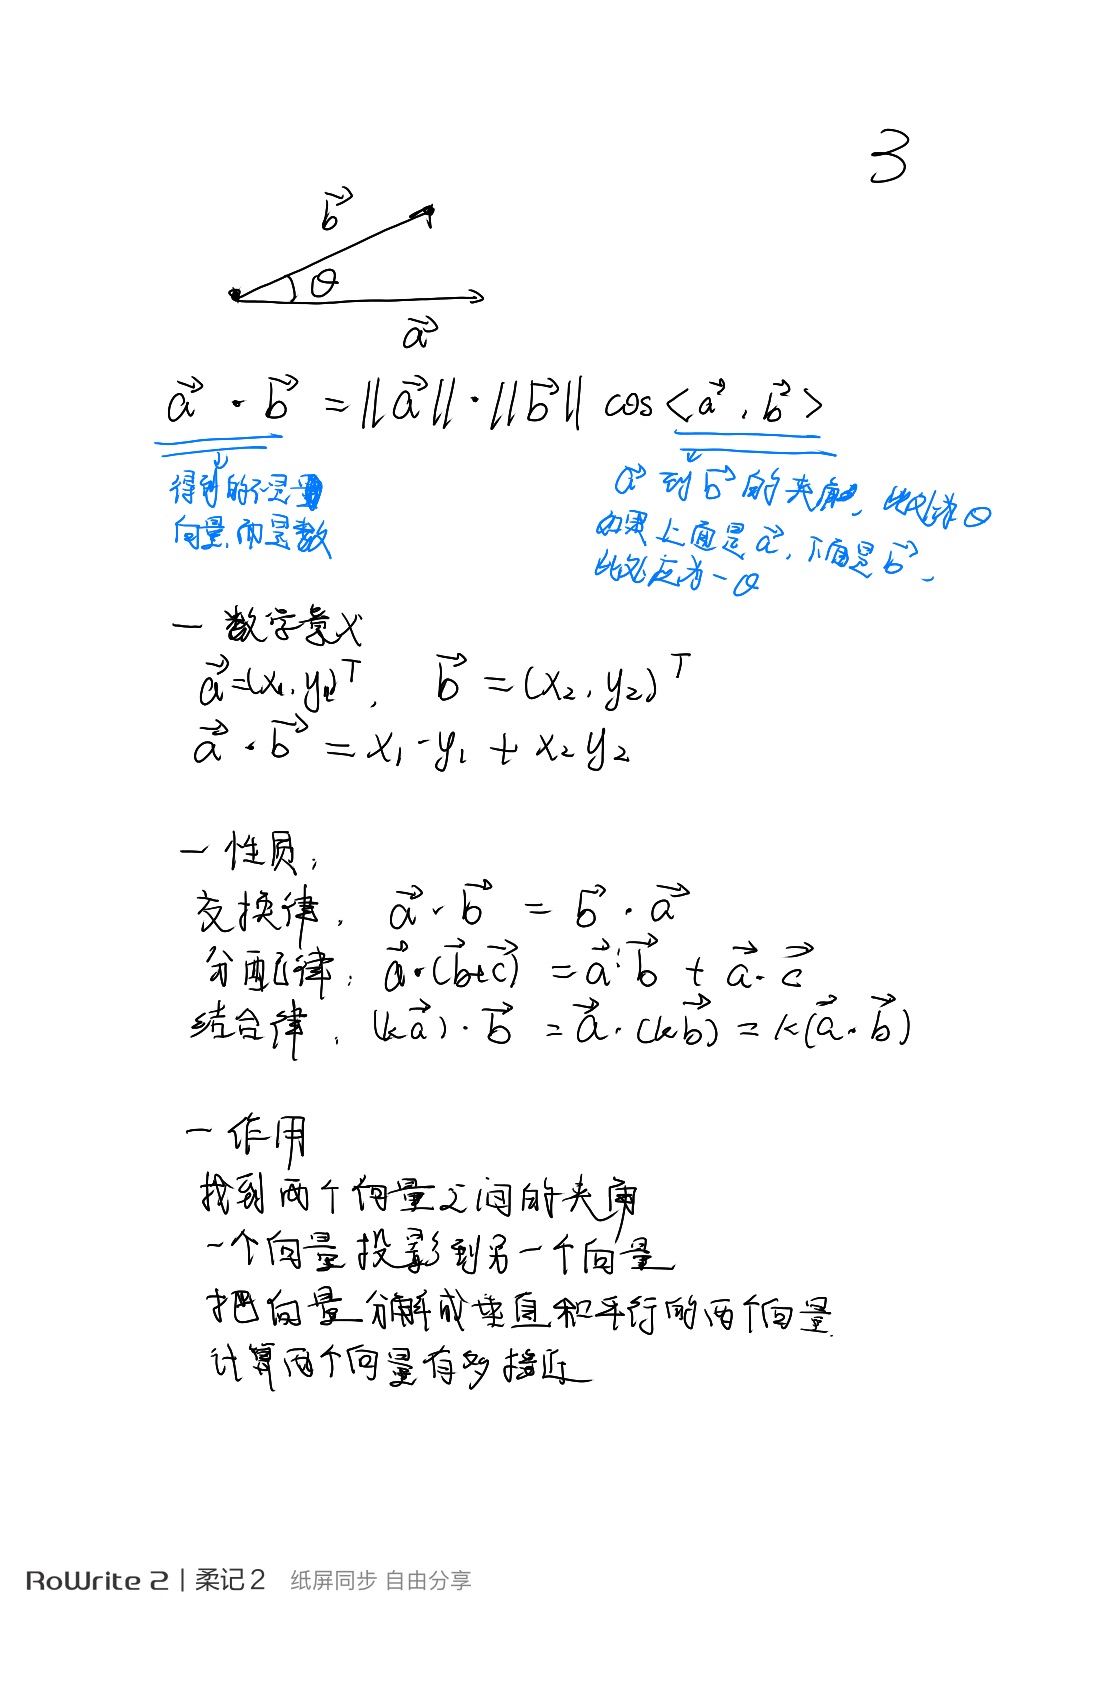 3
b⃗
θ
a⃗
a⃗ · b⃗ = ||a⃗|| · ||b⃗|| cos <a⃗, b⃗>
得到的不是
向量,而是数
a⃗ 到 b⃗ 的夹角, 此处为 θ
如果上面是 a⃗, 下面是 b⃗,
此处应为 -θ
一 数学意义
a⃗=(x₁, y₁)ᵀ, b⃗ = (x₂, y₂)ᵀ
a⃗ · b⃗ = x₁ · y₁ + x₂ y₂
一 性质:
交换律: a⃗ · b⃗ = b⃗ · a⃗
分配律: a⃗ · (b⃗+c⃗) = a⃗ · b⃗ + a⃗ · c⃗
结合律: (ka⃗) · b⃗ = a⃗ · (kb⃗) = k(a⃗ · b⃗)
一 作用
找到两个向量之间的夹角
一个向量投影到另一个向量
把向量分解成垂直和平行的两个向量
计算两个向量有多接近
RoWrite 2 | 柔记 2 纸屏同步 自由分享